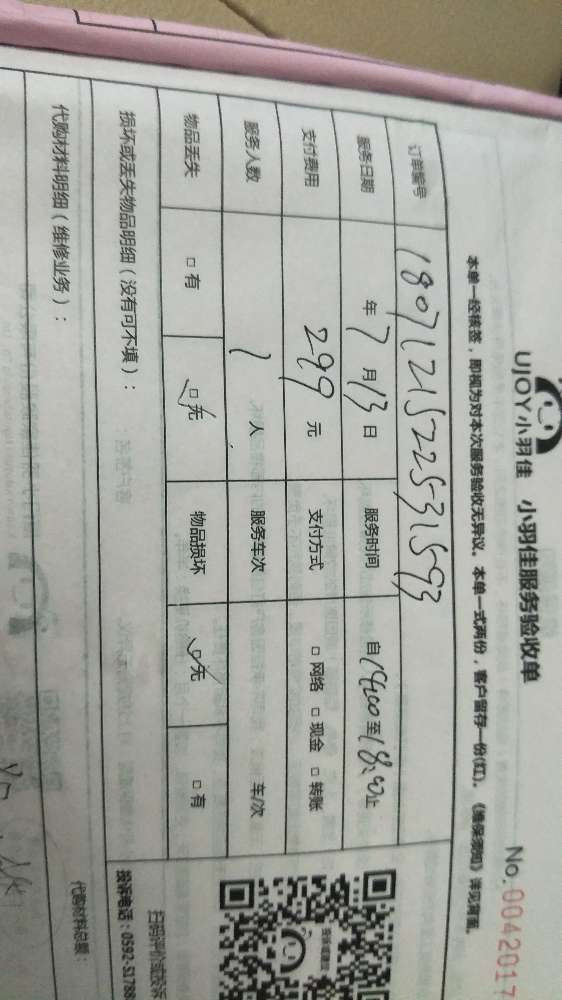 UJOY小羽佳 小羽佳服务验收单 No.0042017
本单一经核签，即视为对本次服务验收无异议。本单一式两份，客户留存一份(红)。《维保须知》详见背面。
订单编号 180712152253151593
服务日期 年7月13日 服务时间 自14:00至18:00止
支付费用 299元 支付方式 □网络 □现金 □转账
服务人数 1人 服务车次 车/次
物品丢失 □有 ☑无 物品损坏 ☑无 □有
损坏或丢失物品明细（没有可不填）： 扫码评价或投诉
投诉电话：0592-5178
代购材料明细（维修业务）： 代购材料总额：